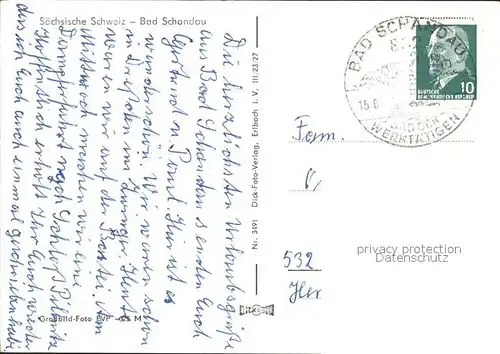 Sächsische Schweiz – Bad Schandau
Die herzlichsten Urlaubsgrüße
aus Bad Schandau senden Euch
Gertrud u. Paul. Hier ist es
wunderschön. Wir waren schon
in Dresden im Zwinger. Heute
waren wir auf der Bastei. Am
Mittwoch machen wir eine
Dampferfahrt nach Schloß Pillnitz
Hoffentlich erholt Ihr Euch wieder
daß ich Euch auch einmal
Großbild-Foto EVP –,25 M
Nr. 3491 Dick-Foto-Verlag, Erlbach i. V. III.23.27
BAD SCHANDAU
WERKTÄTIGEN
10
DEUTSCHE
DEMOKRATISCHE REPUBLIK
Fam.
532
privacy protection
Datenschutz